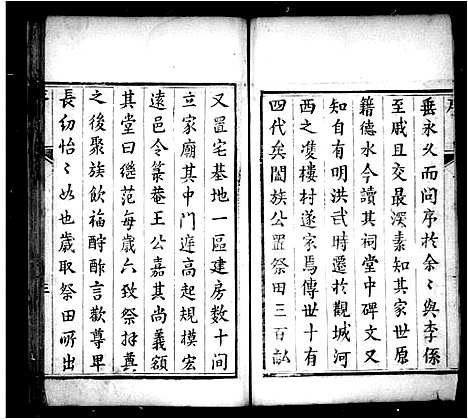 垂永久而問序於余〻與李係
至戚且交最深素知其家世原
籍德水今讀其祠堂中碑文又
知自有明洪武時遷於觀城河
西之㕠樓村遂家焉傳世十有
四代矣闔族公置祭田三百畝
又置宅基地一區建房數十間
立家廟其中門遂高起規模宏
遠邑令築菴王公嘉其尚義額
其堂曰繼范每歲六致祭拜奠
之後聚族飲福酬酢言歡尊卑
長幼怡〻如也歲取祭田所出